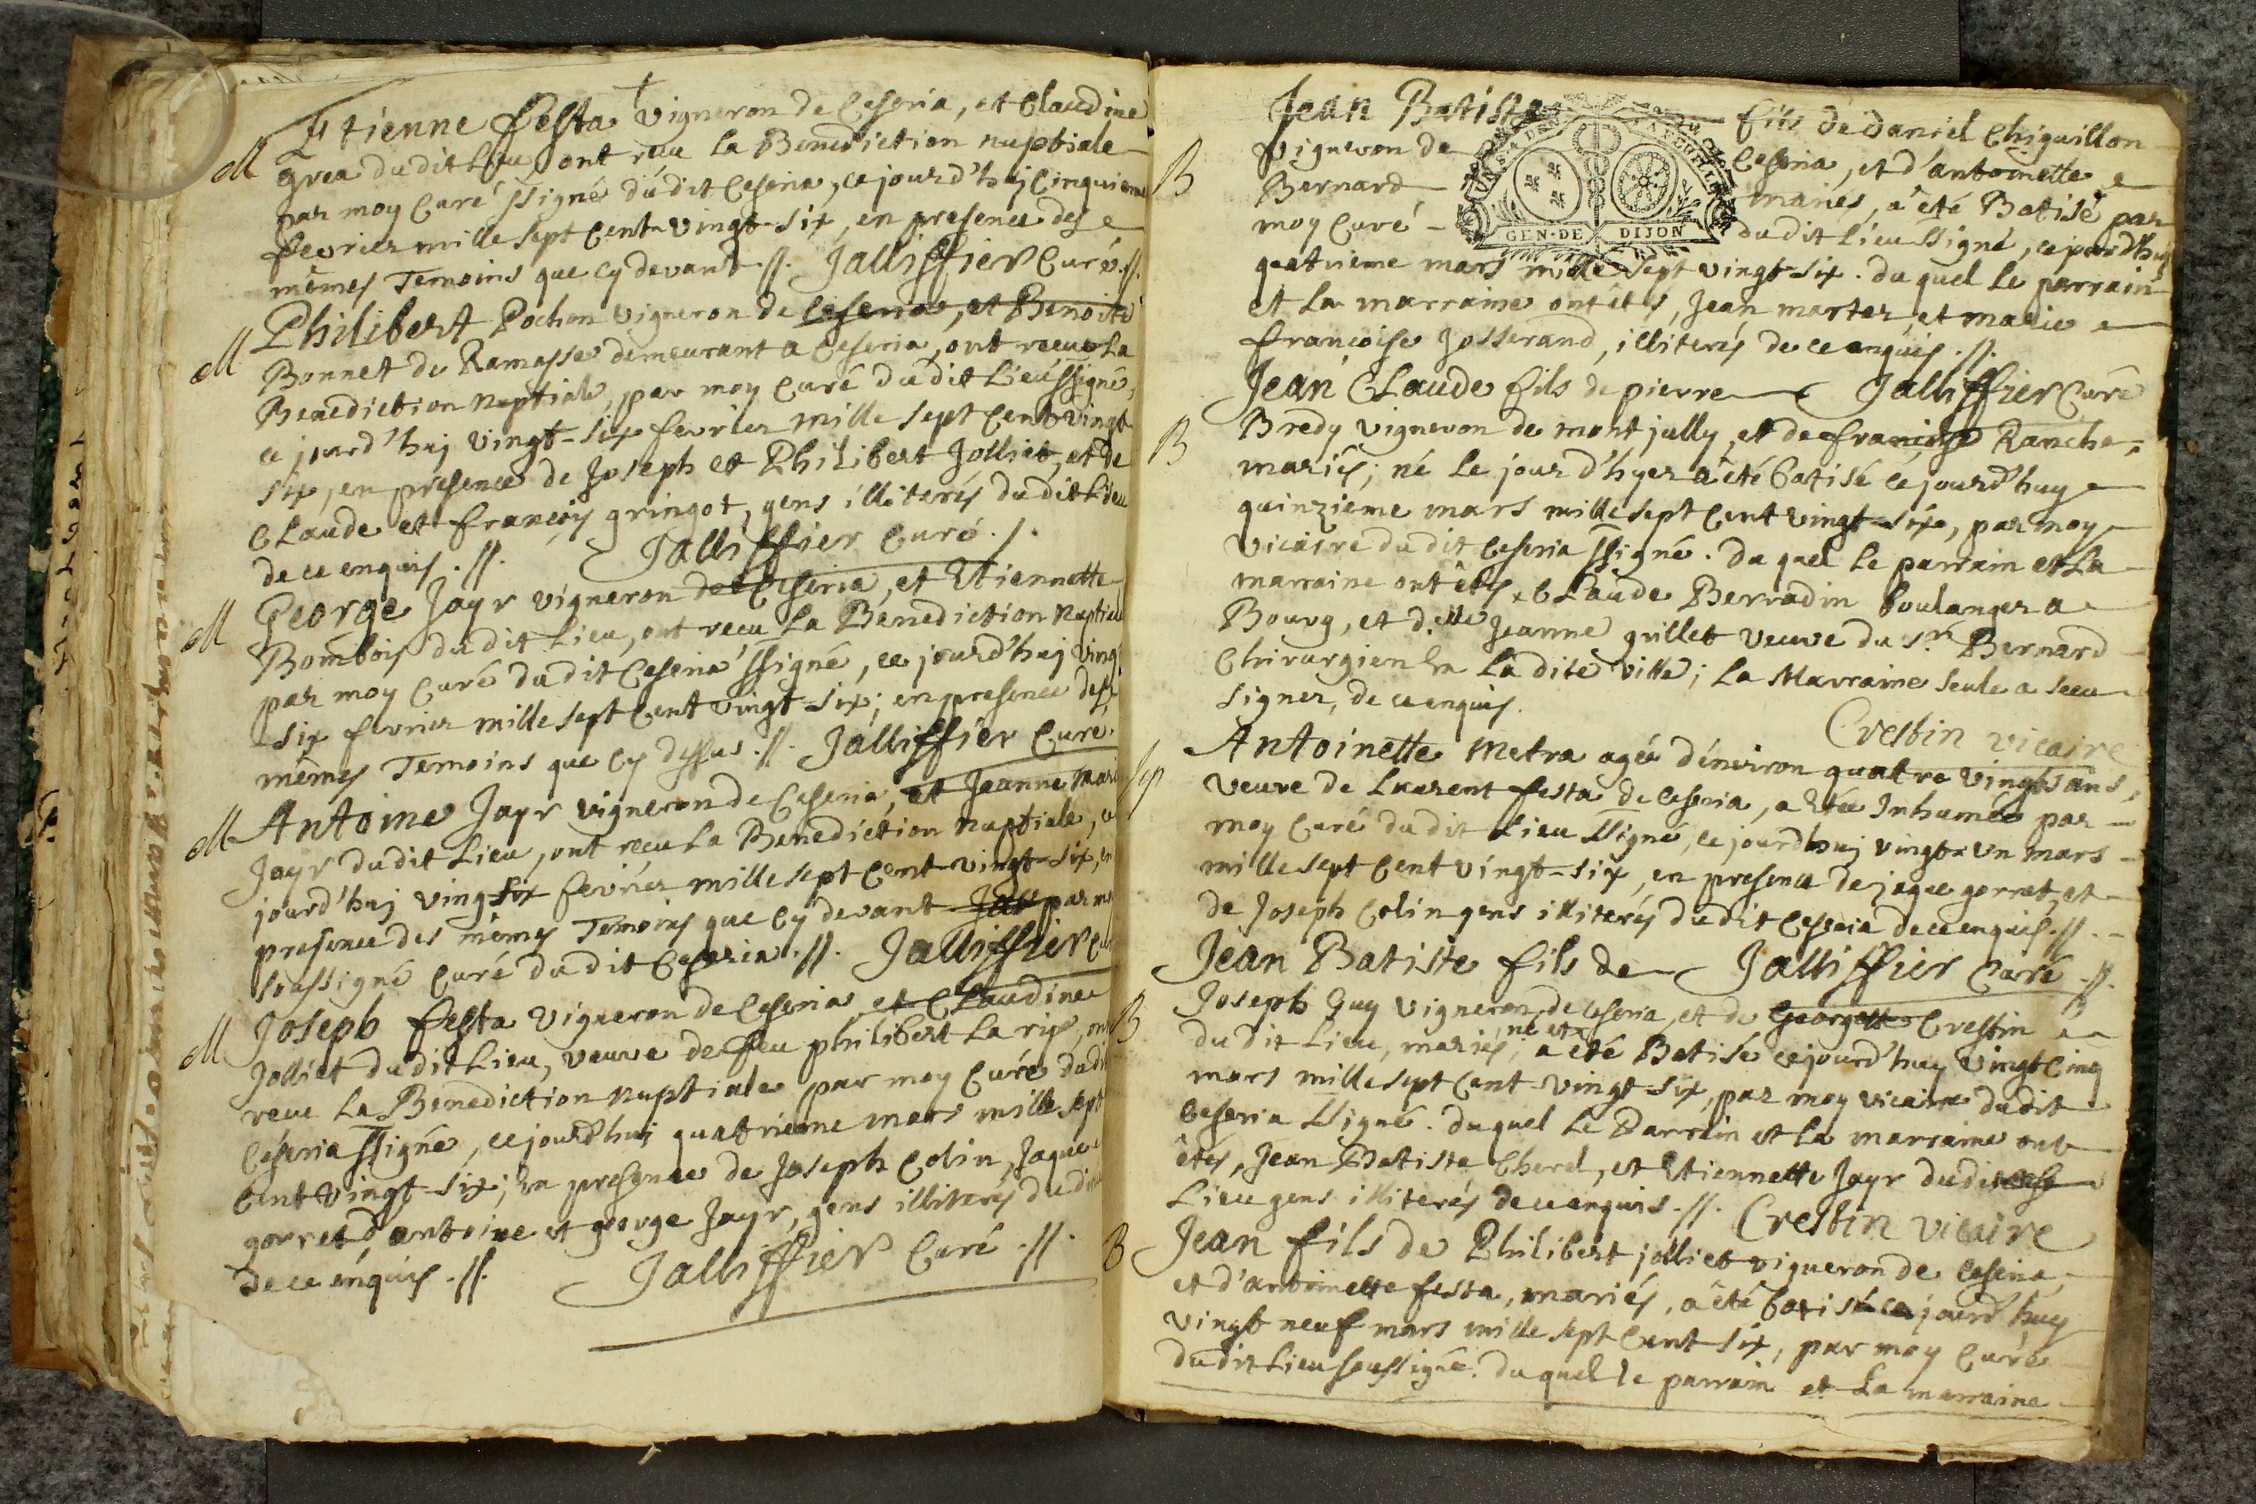 Etienne festa vigneron de Ceseria, et Claudine
M
grea dudit Lieu, ont reçu la Benediction nuptiale
par moy Curé ssigné dudit Ceseria, ce jourd'huj Cinquieme
fevrier mille sept Cent vingt-six, en presence des
mêmes Temoins que cy devant .//. Jalliffier Curé .//.
Philibert Pochon vigneron de Ceseria, et Benoite
M
Bonnet de Ramasse demeurant a Ceseria, ont reçue La
Benediction nuptiale, par moy Curé dudit Lieu ssigné,
ce jourd'huj vingt-six fevrier mille sept Cent vingt
six, en presence de Joseph et Philibert Jolliet, et de
Claude et françois gringot, gens illiterés dudit Lieu
de ce enquis .//. Jalliffier Curé ./.
George Jayr vigneron de Ceseria, et Etiennette
M
Bombois dudit Lieu, ont reçu La Benediction nuptiale
par moy Curé dudit Ceseria ssigné, ce jourd'huj ving
-six fevrier mille sept Cent vingt-six; en presence des
mêmes Temoins que cy dessus .//. Jalliffier Curé.
Antoine Jayr vigneron de Ceseria, et Jeanne Mari
M
Jayr dudit Lieu, ont reçu La Benediction nuptiale, ce
jourd'huj ving-six fevrier mille sept Cent vingt-six, en
presence des mêmes Temoins que cy devant par mo
soussigné curé dudit Ceseria .//. Jalliffier C
Joseph festa vigneron de Ceseria et Claudine
M
Jolliet dudit Lieu, veuve de feu philibert La rix, ont
reçu La Benediction nuptiale par moy Curé dudit
Ceseria ssigné, ce jourd'huj quatrieme mars mille sept
Cent vingt-six; en presence de Joseph Colin, Jaque
gorret, d'antoine et george Jayr, gens illiterés dudit
de ce enquis .//. Jalliffier Curé .//.
Jean Batiste fils de Daniel Chiquillon
B
vigneron de Ceseria, et d'antoinette
Bernard mariés, a été Batisé par
moy Curé - dudit Lieu ssigné, ce jourd'huy
GEN·DE DIJON
quatrieme mars mille sept vingt-six. du quel le parrain
et La marraine ont étés, Jean marter, et marie
françoise Josserand, illiterés de ce enquis .//.
Jean Claude fils de pierre Jalliffier Curé
B
Bredy vigneron de mont jully, et de françoise Ranche,
mariés; né le jour d'hyer a été batisé ce jourd'huy
quinzieme mars mille sept Cent vingt-six, par moy
vicaire dudit Ceseria ssigné. du quel le parrain et La
marraine ont étés, Claude Berradin boulanger a
Bourg, et d.elle Jeanne guillet veuve du s.r Bernard
Chirurgien en La dite ville; La Marraine seule a sceu
signer, de ce enquis.
Crestin vicaire
Antoinette Metra agée d'environ quatre vingts ans,
Sep
veuve de Laurent festa de Ceseria, a étée Inhumée par
moy Curé dudit Lieu ssigné, ce jourd'huj vingt-un mars
mille sept Cent vingt-six, en presence de jaque gorret, et
de Joseph Colin gens illiterés dudit Ceseria de ce enquis .//.
Jean Batiste fils de Jalliffier Curé .//.
B
Joseph Guy vigneron de Ceseria, et de Georgette Crestin
né et
dudit Lieu, mariés, a été Batisé ce jourd'huy vingt cinq
mars mille sept Cent-vingt-six, par moy vicaire dudit
Ceseria ssigné. du quel Le Parrain et La marraine ont
étés, Jean Batiste Cherel, et Etiennette Jayr dudit
Lieu gens illiterés de ce enquis .//. Crestin vicaire
B
Jean fils de Philibert jolliet vigneron de Ceseria,
et d'antoinette festa, mariés, a été batisé ce jourd'huy
vingt neuf mars mille sept Cent six, par moy Curé
dudit Lieu soussigné. du quel le parrain et La marraine